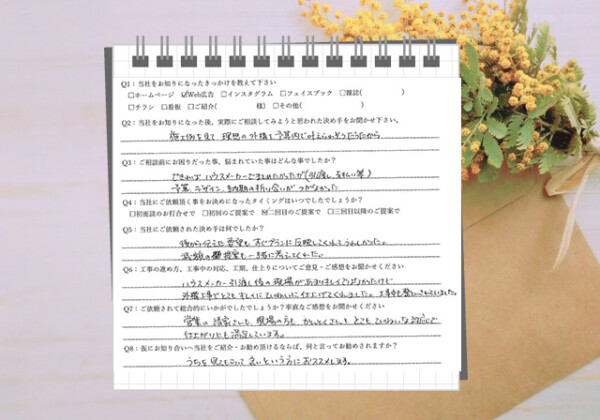 Q1：当社をお知りになったきっかけを教えて下さい
□ホームページ ☑Web広告 □インスタグラム □フェイスブック □雑誌( )
□チラシ □看板 □ご紹介( 様) □その他( )
Q2：当社をお知りになった後、実際にご相談してみようと思われた決め手をお聞かせ下さい。
施工例を見て 理想の外構を予算内で叶えられそうだったから
Q3：ご相談前にお困りだった事、悩まれていた事はどんな事でしたか？
できれば ハウスメーカーでまとめたかったが(引渡し、支払い等)
予算、デザイン、納期の折り合いがつかなかった
Q4：当社にご依頼頂く事をお決めになったタイミングはいつでしたでしょうか？
□初面談のお打合せで □初回のご提案で ☑二回目のご提案で □三回目以降のご提案で
Q5：当社に依頼された決め手は何でしたか？
後から伝えた要望も すぐプランに反映してくれてうれしかった。
減額の提案も一緒に考えてくれた。
Q6：工事の進め方、工事中の対応、工期、仕上りについてご意見・ご感想をお聞かせください
ハウスメーカー引渡し後の現場があまりキレイではなかったけど
外構工事でとてもキレイに ていねいに仕上げてくれました。
Q7：ご依頼されて総合的にいかがでしたでしょうか？率直なご感想をお聞かせください
営業の さんも、現場の方も、 とても ていねいな対応で
仕上がりにも満足しています。
Q8：仮にお知り合いへ当社をご紹介・お勧め頂けるならば、何と言ってお勧めされますか？
うちを見てもらって 良いという方に おススメします。